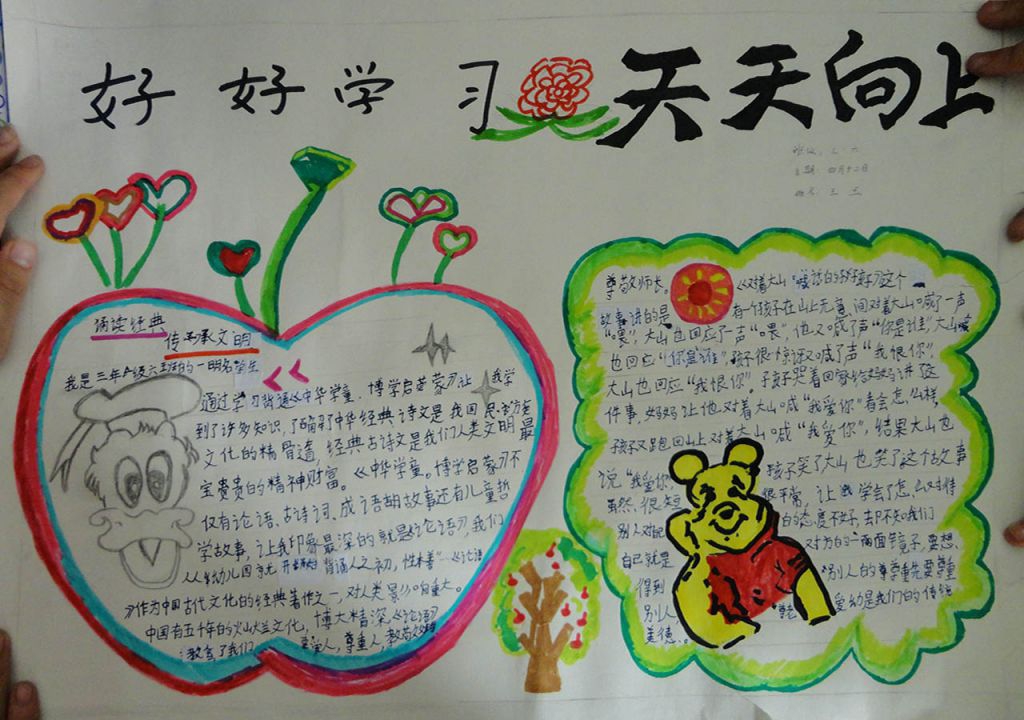 好好学习 天天向上
四月十二日
诵读经典
传承文明
我是三年级六班的一名学生
通过学习背诵《中华学童、博学启蒙》让我学
到了许多知识,了解了中华经典诗文是我国民
文化的精骨遗 经典古诗文是我们人类文明最
宝贵贵的精神财富。《中华学童。博学启蒙》不
仅有论语、古诗词、成语故事还有儿童哲
学故事,让我印象最深的就是《论语》,我们
从幼儿园就开始背诵人之初,性本善…《论语
》作为中国古代文化的经典著作之一,对人类影响重大。
中国有五千年的文化,博大精深《论语》
教会了我们 人,尊重人,
尊敬师长。《对着大山喊话的孩子》这个
故事讲的是 有一个孩子在山上无意间对着大山喊了一声
“喂”,大山也回应了一声“喂”,他又喊了声“你是谁”,大山
也回应“你是谁”,孩子很惊讶又喊了声“我恨你”,
大山也回应“我恨你”,孩子哭着回家给妈妈讲这
件事,妈妈让他对着大山喊“我爱你”看会怎么样,
孩子又跑回山上对着大山喊“我爱你”,结果大山也
说“我爱你 孩子笑了大山也笑了这个故事
虽然很短 很平常,让我学会了怎么对待
别人对 的态度不好,去却不知我们
自己就是 对方的一面镜子,要想
得到 别人的尊重先要尊重
别人, 爱幼是我们的传统
美德。